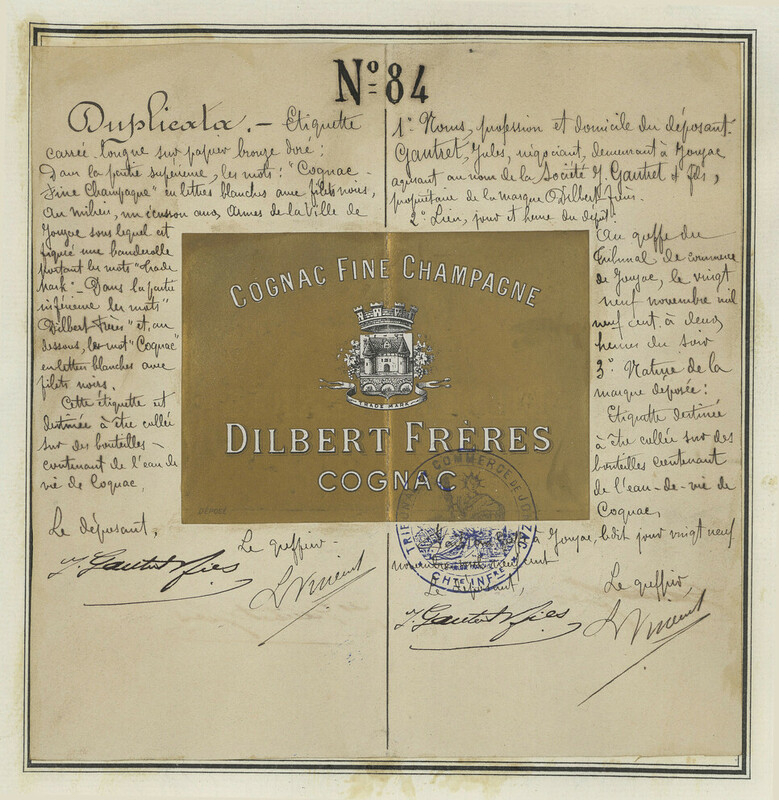 Nº 84
Duplicata. — Etiquette
carrée longue sur papier bronze doré :
Dans la partie supérieure, les mots : "Cognac-
Fine Champagne" en lettres blanches avec filets noirs.
Au milieu, un écusson aux Armes de la Ville de
Jonzac sous lequel est
figuré une banderolle
portant les mots "Trade
Mark - Dans la partie
inférieure les mots "
Dilbert Frères" et, au
dessous, le mot "Cognac"
en lettres blanches avec
filets noirs.
Cette étiquette est
destinée à être collée
sur des bouteilles -
contenant de l'eau de
vie de Cognac,
Le déposant,
Le greffier -
J. Gautret & fils
1º Noms, profession et domicile du déposant -
Gautret, Jules, négociant, demeurant à Jonzac
agissant au nom de la Société J. Gautret & fils,
propriétaire de la marque Dilbert frères.
2º Lieu, jour et heure du dépôt :
Au greffe du
Tribunal de Commerce
de Jonzac, le vingt
neuf novembre mil
neuf cent à deux
heures du soir
3º Nature de la
marque déposée :
Etiquette destinée
à être collée sur des
bouteilles contenant
de l'eau-de-vie de
Cognac,
à Jonzac, ledit jour vingt neuf
novembre mil neuf cent
Le déposant,
Le greffier,
J. Gautret & fils
COGNAC FINE CHAMPAGNE
TRADE MARK
DILBERT FRÈRES
COGNAC
DÉPOSÉ
TRIBUNAL DE COMMERCE DE JONZAC
CHTE INFRE